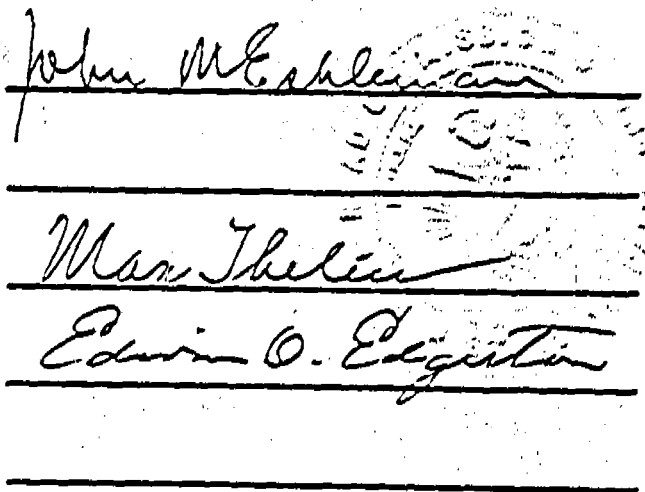 John M Eshleman
Max Thelen
Edwin O. Edgerton